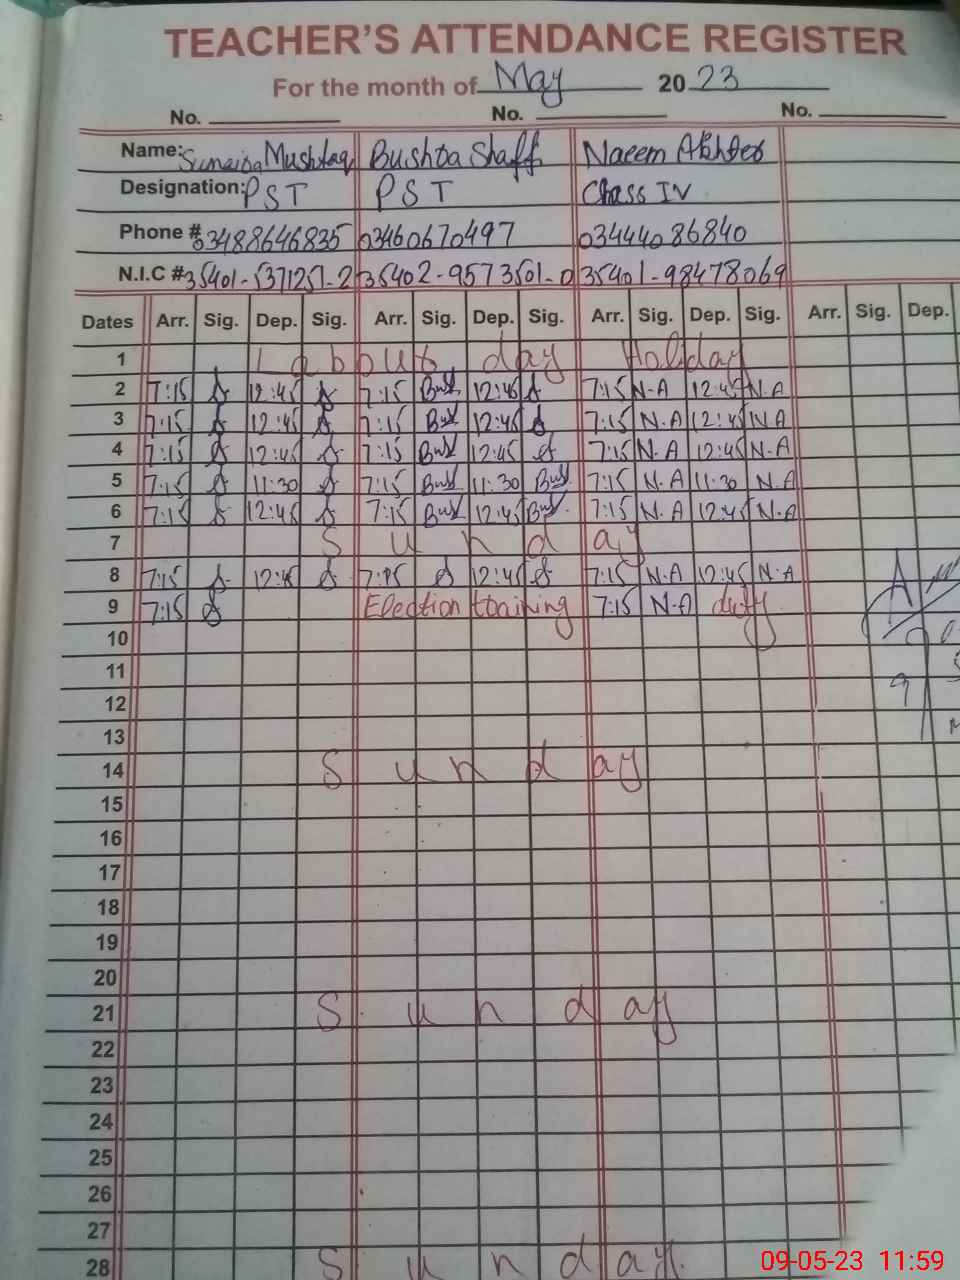 TEACHER'S ATTENDANCE REGISTER
For the month of May 2023
No. No. No.
Name: Sumaira Mushtaq Bushra Shaff Naeem Akhter
Designation: PST PST Class IV
Phone # 03488646835 03460670497 03444086840
N.I.C # 35401-5371251-2 35402-9573501-0 35401-98478069
Dates Arr. Sig. Dep. Sig. Arr. Sig. Dep. Sig. Arr. Sig. Dep. Sig. Arr. Sig. Dep.
1 Labour day Holiday
2 7:15 12:45 7:15 12:45 7:15 N-A 12:45 N.A
3 7:15 12:45 7:15 12:45 7:15 N.A 12:45 N.A
4 7:15 12:45 7:15 12:45 7:15 N.A 12:45 N.A
5 7:15 11:30 7:15 11:30 7:15 N.A 11:30 N.A
6 7:15 12:45 7:15 12:45 7:15 N.A 12:45 N.A
7 Sunday
8 7:15 12:45 7:15 12:45 7:15 N.A 12:45 N.A
9 7:15 Election training 7:15 N.A duty
10
11
12
13
14 Sunday
15
16
17
18
19
20
21 Sunday
22
23
24
25
26
27
28 Sunday
09-05-23 11:59